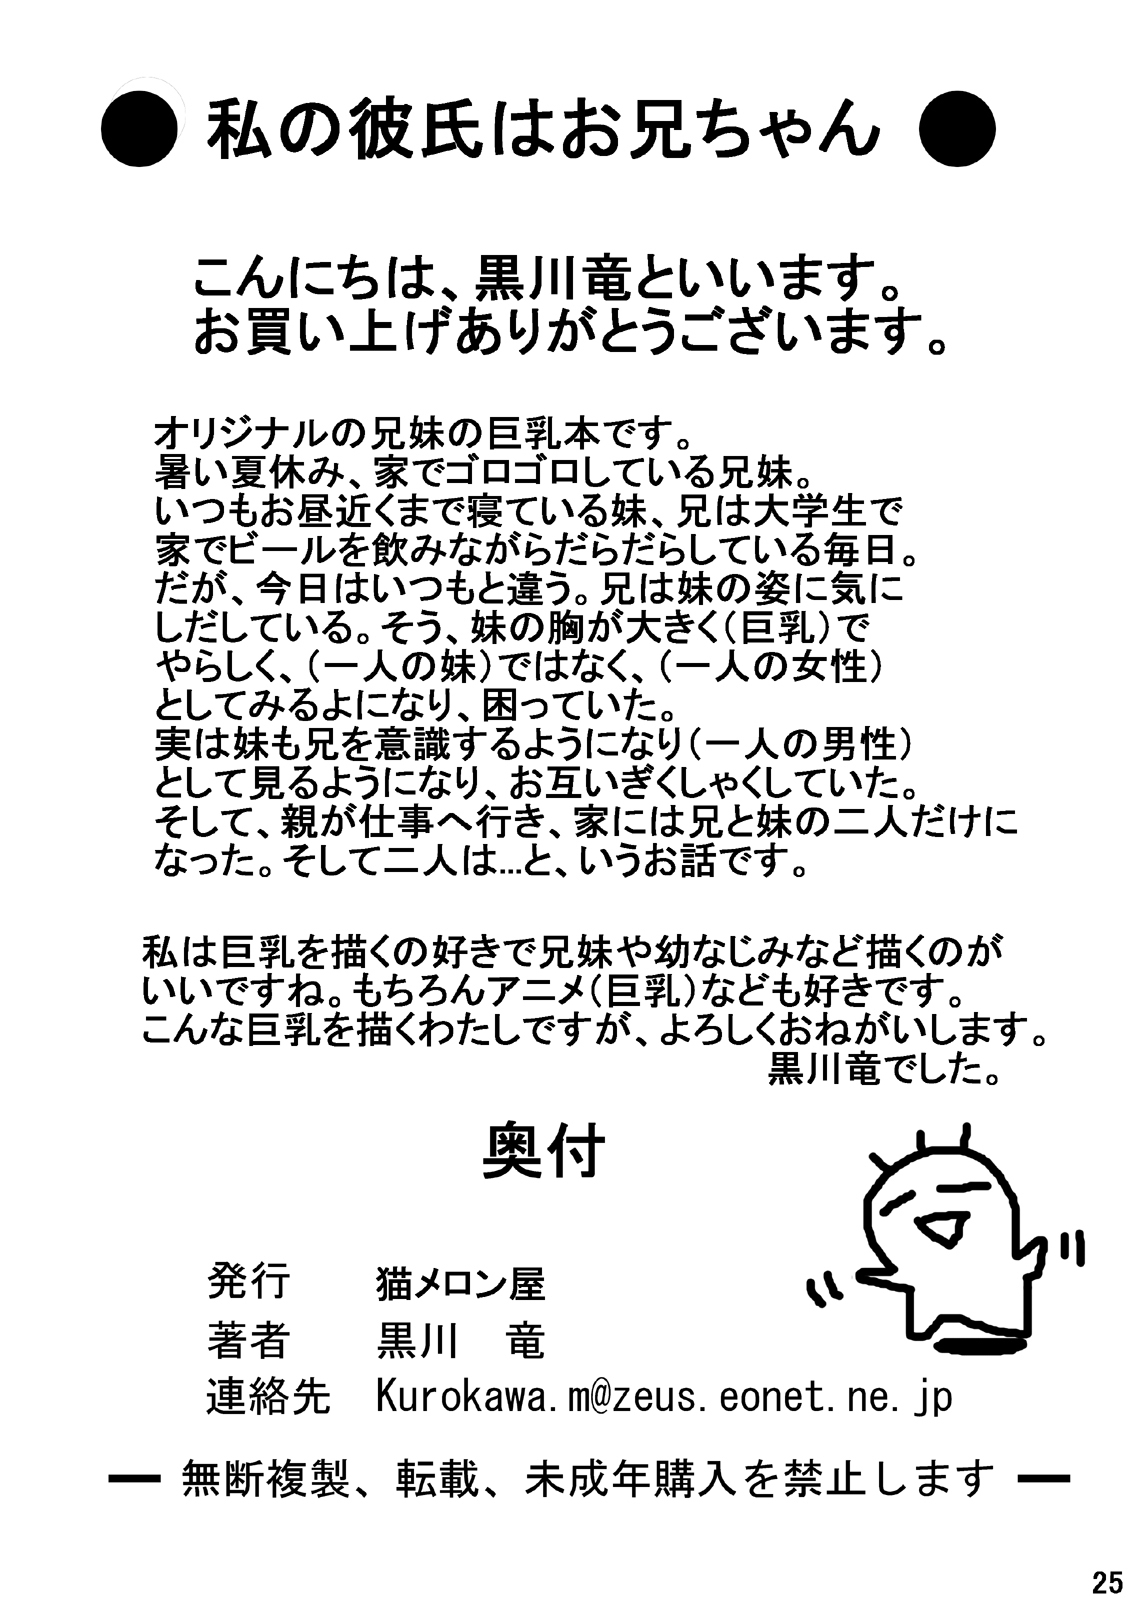 ● 私の彼氏はお兄ちゃん ●
こんにちは、黒川竜といいます。
お買い上げありがとうございます。
オリジナルの兄妹の巨乳本です。
暑い夏休み、家でゴロゴロしている兄妹。
いつもお昼近くまで寝ている妹、兄は大学生で
家でビールを飲みながらだらだらしている毎日。
だが、今日はいつもと違う。兄は妹の姿に気に
しだしている。そう、妹の胸が大きく(巨乳)で
やらしく、(一人の妹)ではなく、(一人の女性)
としてみるよになり、困っていた。
実は妹も兄を意識するようになり(一人の男性)
として見るようになり、お互いぎくしゃくしていた。
そして、親が仕事へ行き、家には兄と妹の二人だけに
なった。そして二人は...と、いうお話です。
私は巨乳を描くの好きで兄妹や幼なじみなど描くのが
いいですね。もちろんアニメ(巨乳)なども好きです。
こんな巨乳を描くわたしですが、よろしくおねがいします。
黒川竜でした。
奥付
発行 猫メロン屋
著者 黒川 竜
連絡先 Kurokawa.m@zeus.eonet.ne.jp
― 無断複製、転載、未成年購入を禁止します ―
25